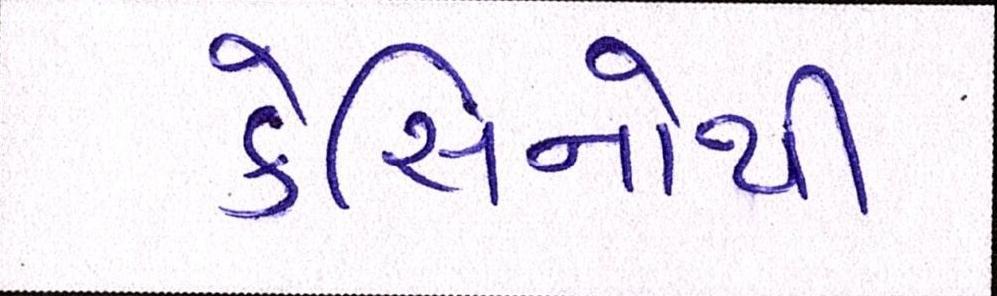 કેસિનોથી